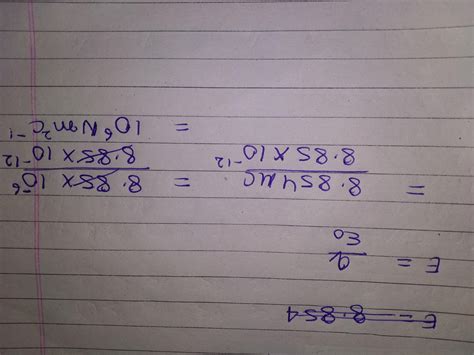 E = 8.854
E = q/ε₀
= 8.854 μC / 8.85 × 10⁻¹² = 8.85 × 10⁻⁶ / 8.85 × 10⁻¹²
= 10⁶ Nm²C⁻¹